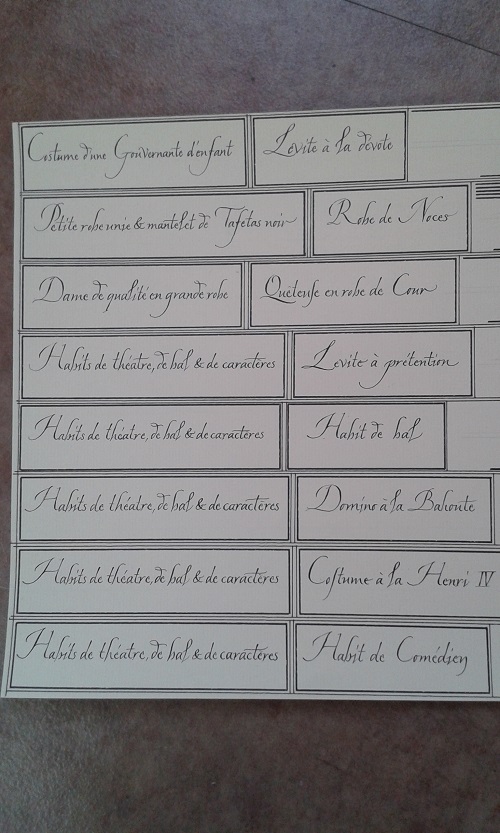 Costume d'une Gouvernante d'enfant
Lévite à la dévote
Petite robe unie & mantelet de Tafetas noir
Robe de Noces
Dame de qualité en grande robe
Quêteuſe en robe de Cour
Habits de théatre, de bal & de caractères
Levite à prétention
Habits de théatre, de bal & de caractères
Habit de bal
Habits de théatre, de bal & de caractères
Domino à la Bahoute
Habits de théatre, de bal & de caractères
Coſtume à la Henri IV
Habits de théatre, de bal & de caractères
Habit de Comédien